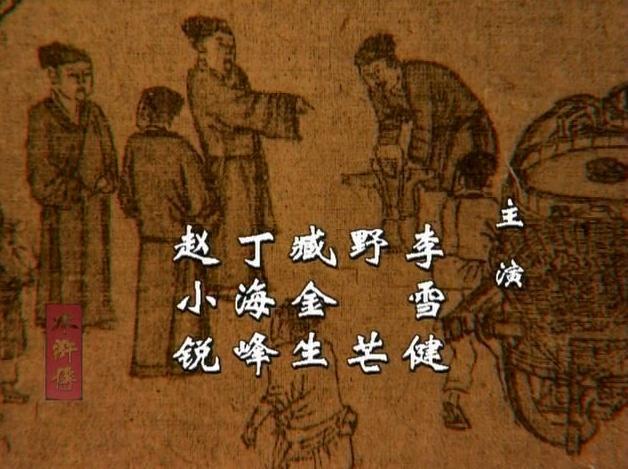 主演
李雪健
野芒
臧金生
丁海峰
赵小锐
水浒传